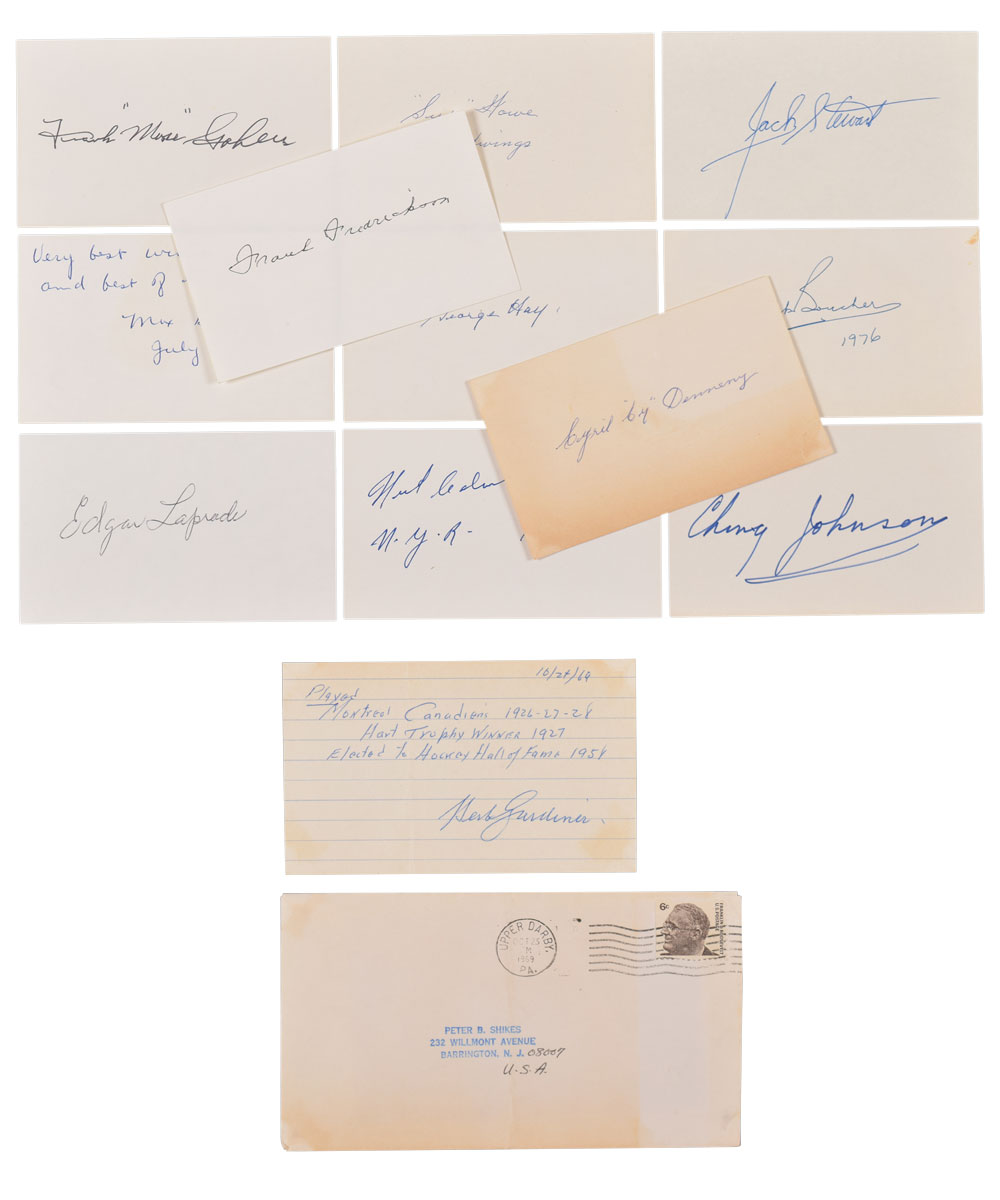 Frank "Moose" Goheen
"Syd" Howe
wings
Jack Stewart
Frank Fredrickson
Very best
and best of
Max
July
George Hay.
Boucher
1976
Cyril "Cy" Denneny
Edgar Laprade
N.Y.R.
Ching Johnson
10/24/69
Played
Montreal Canadiens 1926-27-28
Hart Trophy Winner 1927
Elected to Hockey Hall of Fame 1958
Herb Gardiner.
UPPER DARBY.
OCT 23
M
1969
PA.
6¢
U.S. POSTAGE
PETER B. SHIKES
232 WILLMONT AVENUE
BARRINGTON, N. J. 08007
U.S.A.